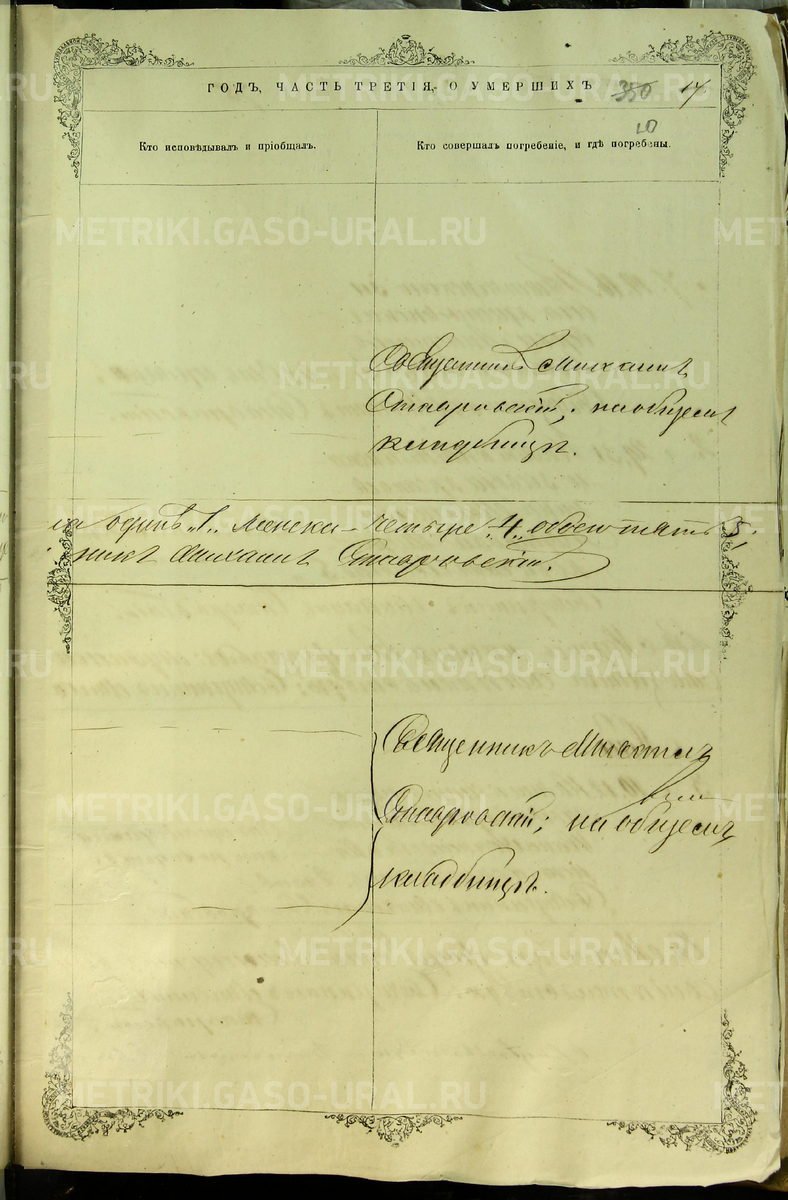 ГОДЪ, ЧАСТЬ ТРЕТІЯ, О УМЕРШИХЪ 350 17
10
Кто исповѣдывалъ и пріобщалъ.
Кто совершалъ погребеніе, и гдѣ погребены.
METRIKI.GASO-URAL.RU
Священникъ Михаилъ
Ставровскій; на общемъ
кладбищѣ.
одинъ „1„ женска – четыре „4„ обоего пять 5;
никъ Михаилъ Ставровскій.
Священникъ Михаилъ
Ставровскій; на общемъ
кладбищѣ.